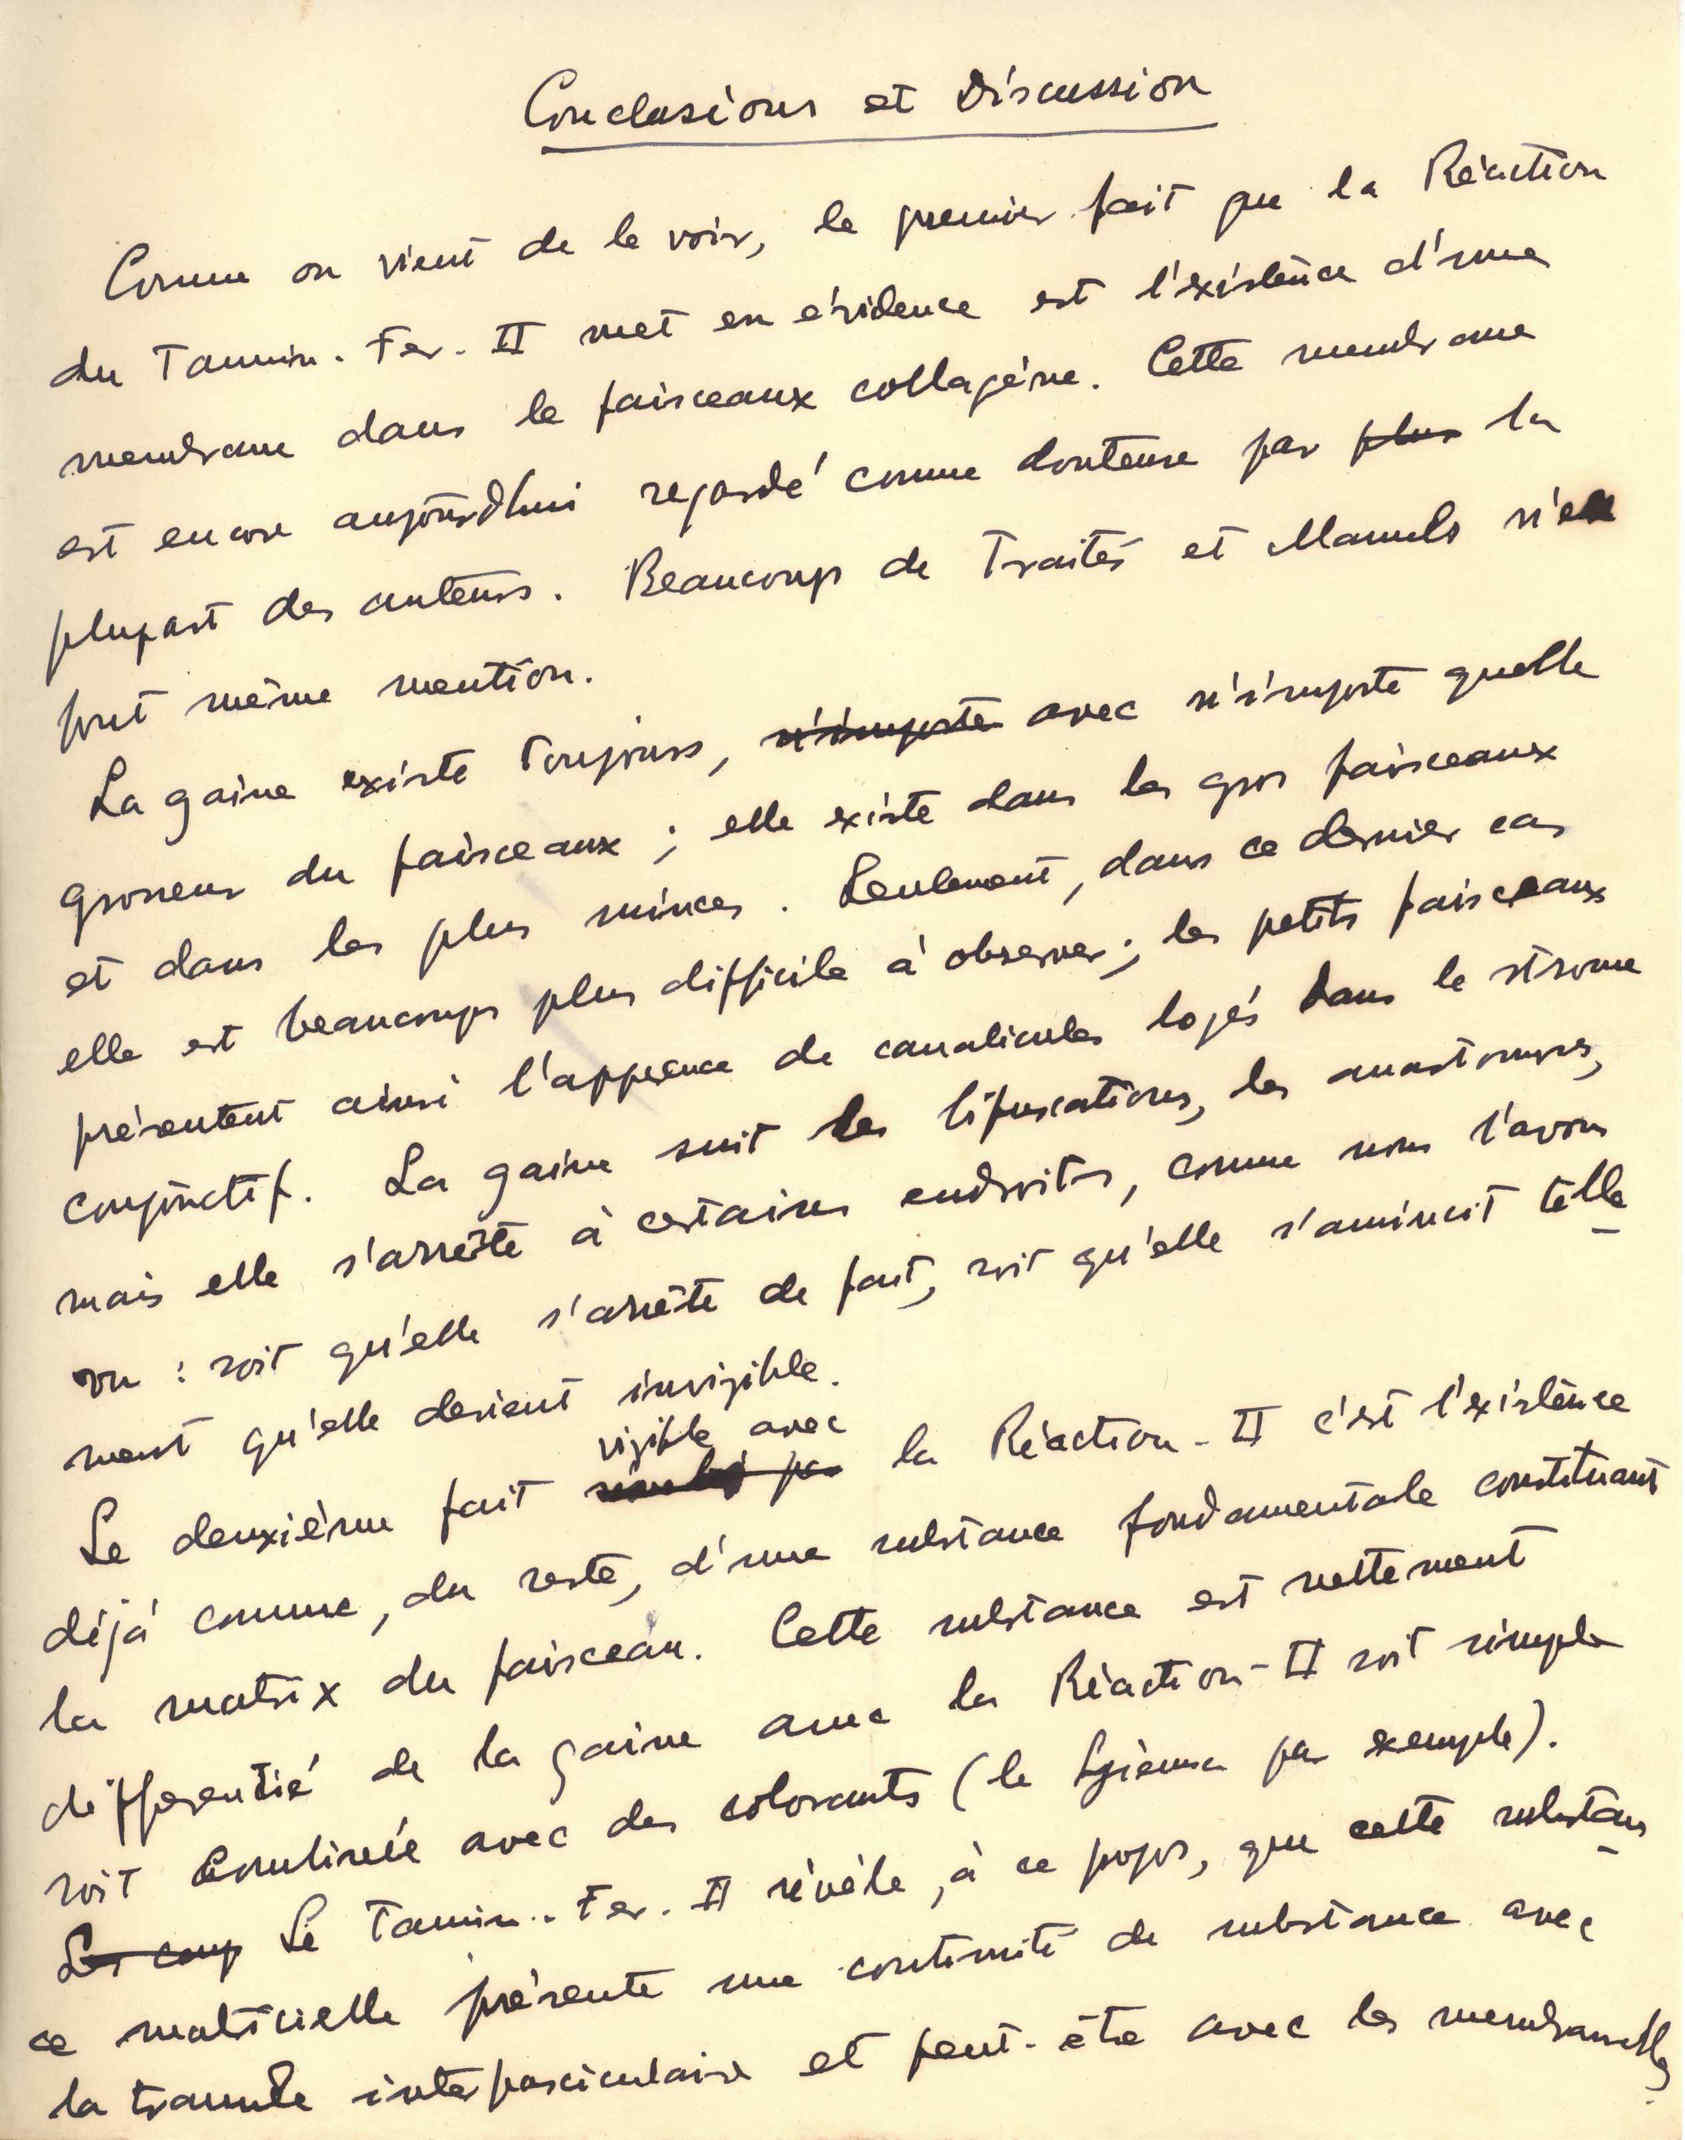 Conclusions et Discussion
Comme on vient de le voir, le premier fait que la Réaction
du Tannin-Fer-II met en évidence est l'existence d'une
membrane dans le faisceaux collagène. Cette membrane
est encore aujourd'hui regardé comme douteuse par plus la
plupart des auteurs. Beaucoup de Traités et Manuels n'en
font même mention.
La gaine existe toujours, n'importe avec n'importe quelle
grosseur du faisceaux ; elle existe dans les gros faisceaux
et dans les plus minces. Seulement, dans ce dernier cas
elle est beaucoup plus difficile à observer ; les petits faisceaux
présentent ainsi l'apparence de canalicules logés dans le stroma
conjonctif. La gaine suit les bifurcations, les anastomoses,
mais elle s'arrête à certains endroits, comme nous l'avons
vu : soit qu'elle s'arrête de fait, soit qu'elle s'amincit telle
ment qu'elle devient invisible.
visible avec
Le deuxième fait la Réaction-II c'est l'existence
déjà connue, du reste, d'une substance fondamentale constituant
la matrix du faisceau. Cette substance est nettement
différentié de la gaine avec la Réaction-II soit simple
soit combinée avec des colorants (le Giemsa par exemple).
Les coup Le Tannin-Fer-II révèle, à ce propos, que cette substan
ce matricielle présente une continuité de substance avec
la tramule interfasciculaire et peut-être avec les membranelles